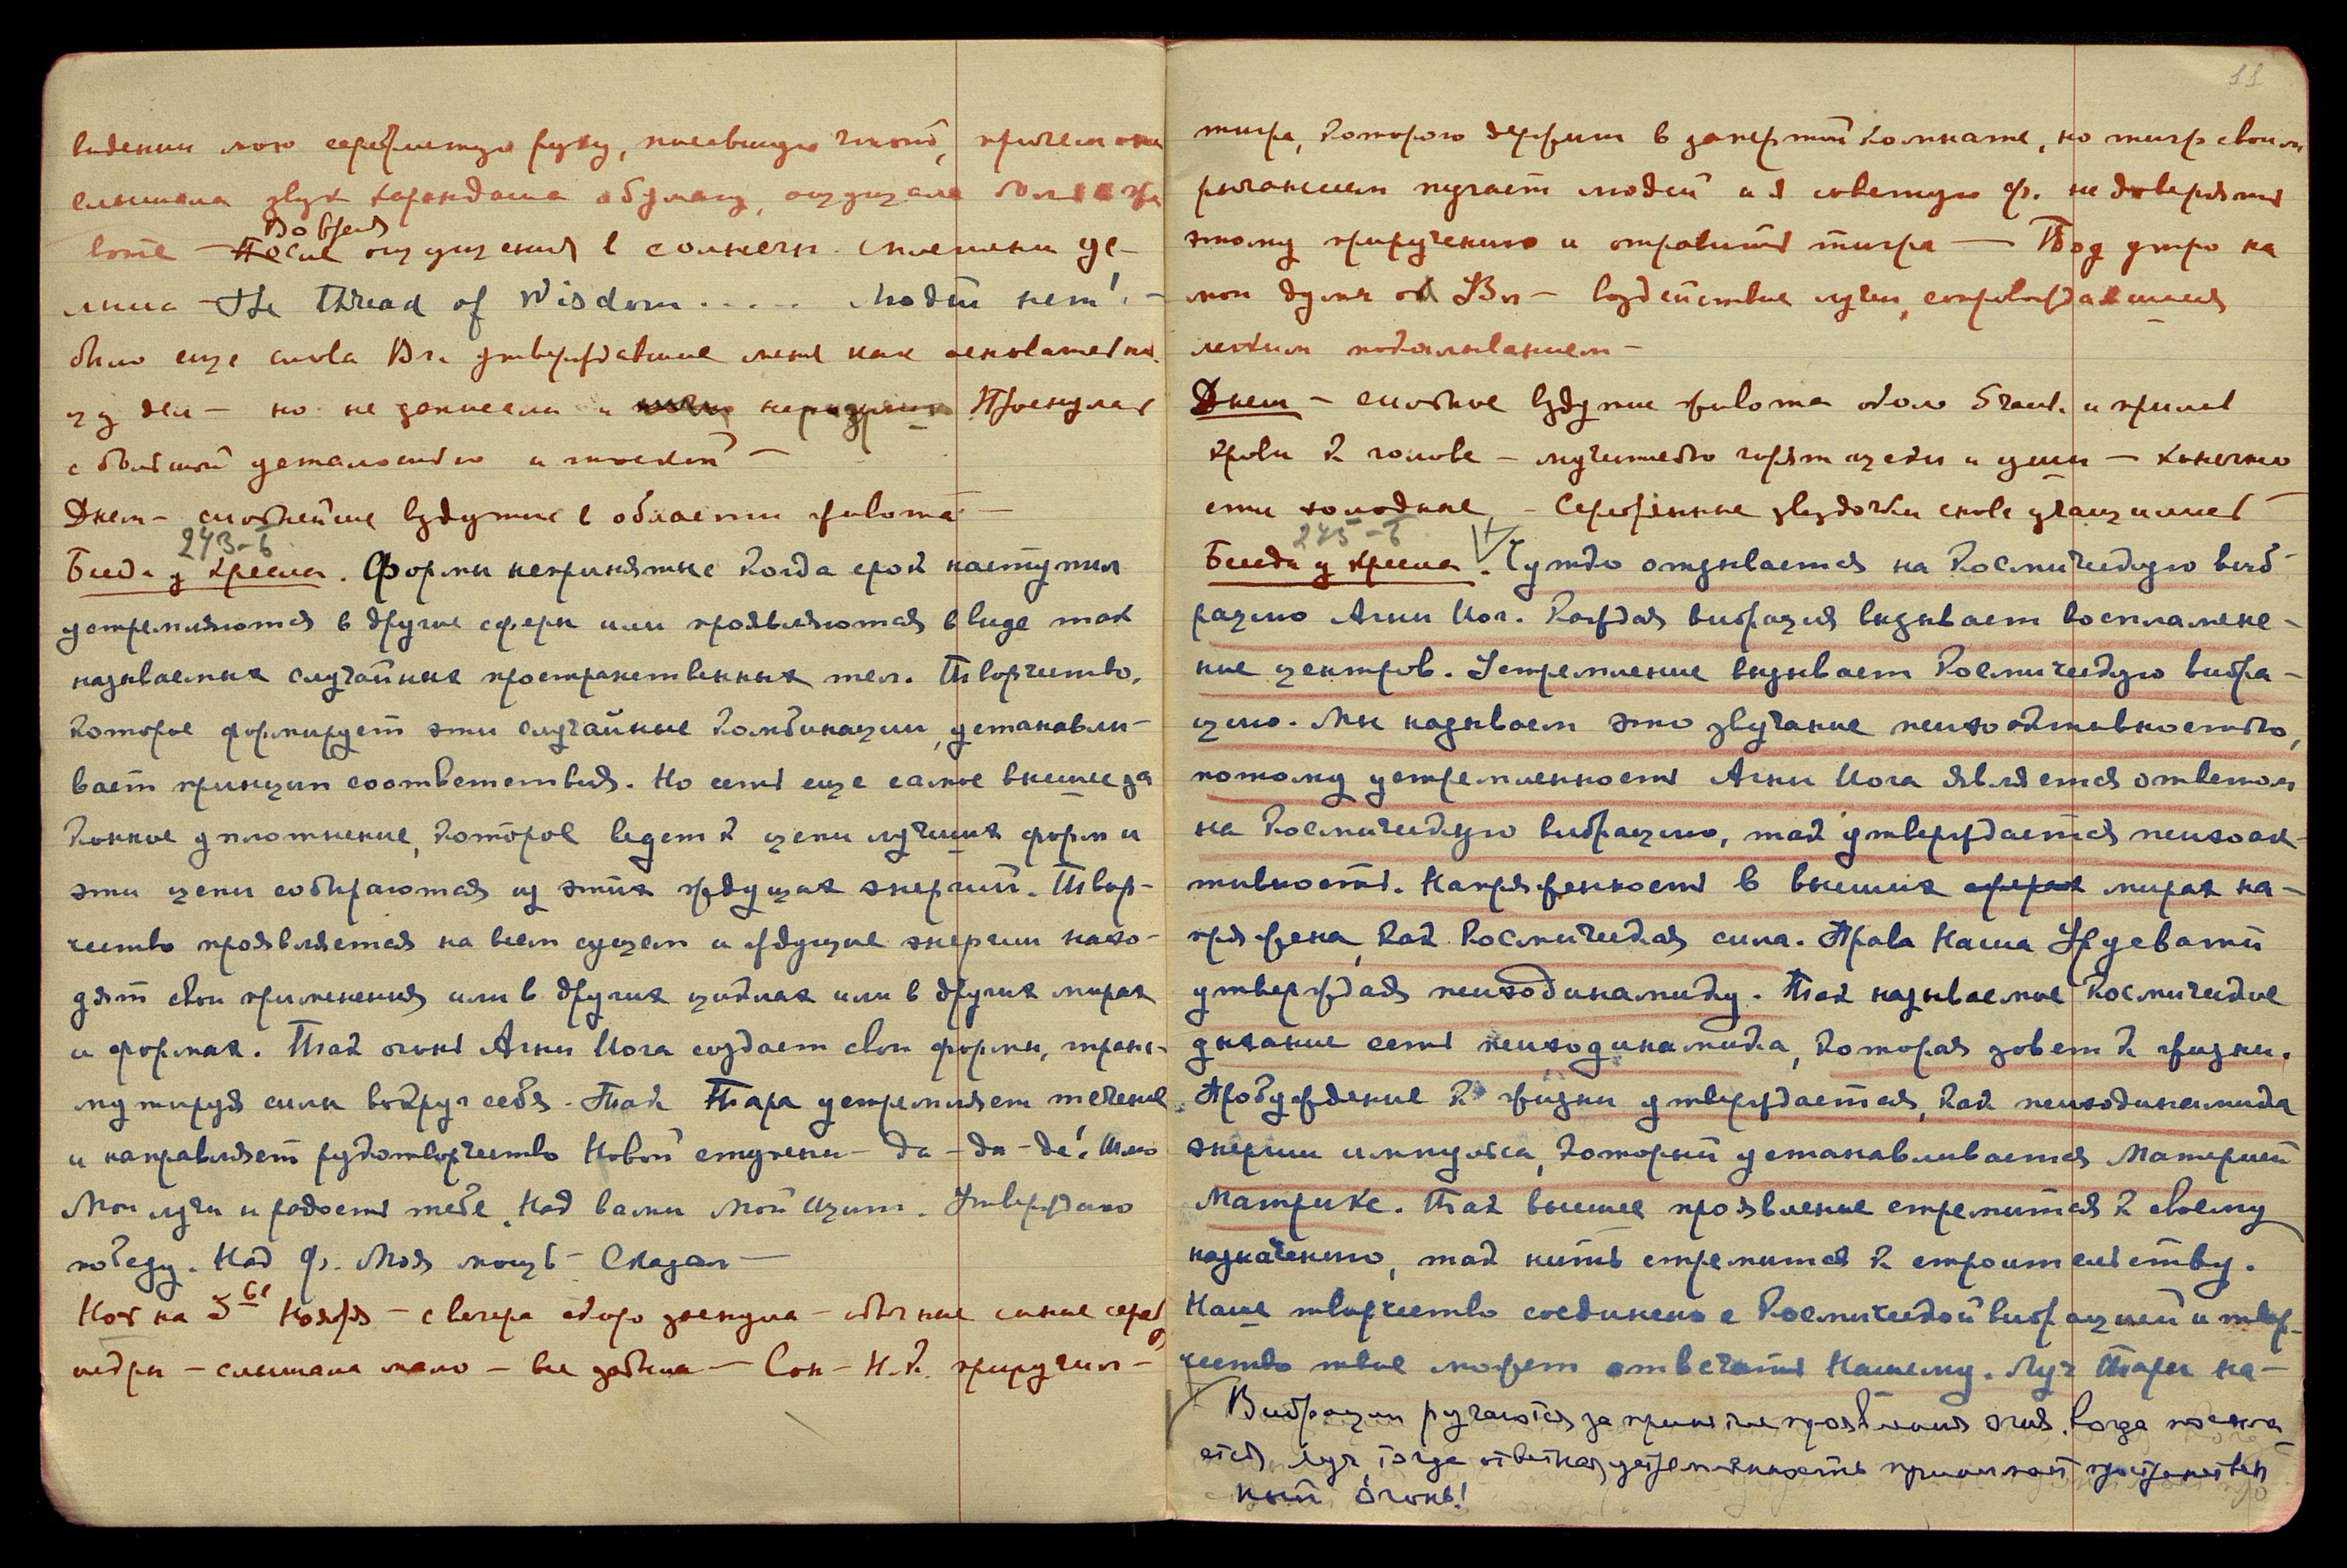 видении мою серебристую руку, писавшую что-то, причем она
слышала звук карандаша о бумагу, ощущала боли в жи
воте — После
Во время
ощущения в солнечн. сплетении ус-
лыш. The thread of Wisdom ..... Людей нет! —
было еще слова Вл. утверждавшие меня как основательн.
из дел — но не записала и Проснулась
с большой усталостью и тоской —
Днем — сильнейшие вздутие в области живота —
243-б
Беседа у кресла. Формы непринятые когда срок наступил
устремляются в другие сферы или проявляются в виде так
называемых случайных пространственных тел. Творчество,
которое формирует эти случайные комбинации, устанавли-
вает принцип соответствия. Но есть еще самое высшее за
конное уплотнение, которое ведет к цепи лучших форм и
эти цепи собираются из этих ждущих энергий. Твор-
чество проявляется на всем сущем и ждущие энергии нахо-
дят свои применения или в других циклах или в других мирах
и формах. Так огонь Агни Иога создает свои формы, транс-
мутируя силы вокруг себя. Так Тара устремляет течение
и направляет рукотворчество Новой ступени — да — да — да! Шлю
Мои лучи и радость тебе. Над вами Мой Щит. Утверждаю
победу. Над Ф. Моя мощь — Сказал —
Ночь на 5ое Ноября — с вечера скоро заснула — обычные синие сереб
искры — слышала мало — все забыла — Сон — Н.К. приручил —
11
тигра, которого держит в запертой комнате, но тигр своим
рычанием пугает людей и я советую Ф. не доверять
этому приручению и отравить тигра — Под утро на
мои думы об Вл — воздействие луча, сопровождавшееся
легким подалыванием —
Днем — сильное вздутие живота около 5 час. и прилив
крови к голове — мучительно горят щеки и уши — конечно
сти холодные — Серебряные звездочки снова участились
245-б
Беседа у кресла. Чутко отзывается на Космическую виб-
рацию Агни Иог. Каждая вибрация вызывает воспламене-
ние центров. Устремление вызывает Космическую вибра-
цию. Мы называем это звучание психоактивностью,
потому устремленность Агни Иога является ответом
на Космическую вибрацию, так утверждается психоак-
тивность. Напряженность в высших сферах мирах на-
пряжена, как Космическая сила. Права Наша Урусвати
утверждая психодинамику. Так называемое Космическое
дыхание есть психодинамика, которая зовет к жизни.
Пробуждение к жизни утверждается, как психодинамика
энергии импульса, который устанавливается Материей
Матрикс. Так высшее проявление стремится к своему
назначению, так нить стремится к строительству.
Наше творчество соединено с Космической вибрацией и твор-
чество твое может отвечать Нашему. Луч Тары на-
Вибрации ручаются за принятие проявления огня. Когда посыла
ется луч, тогда ответная устремленность принимает пространствен
ный огонь!